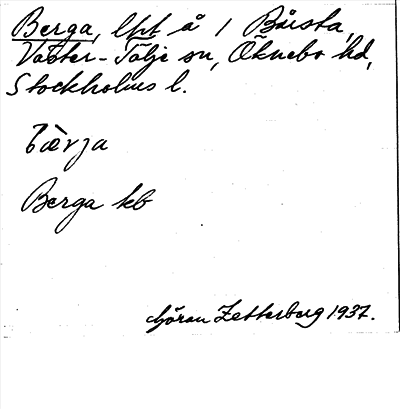 Berga, lht å 1 Bårsta,
Väster-Tälje sn, Öknebo hd,
Stockholms l.
bærja
Berga kb
Göran Zetterberg 1937.